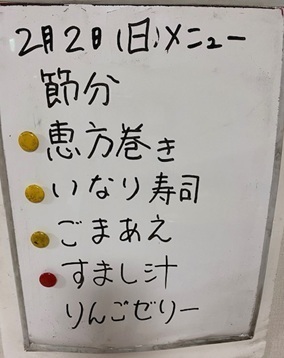 2月2日(日)メニュー
節分
恵方巻き
いなり寿司
ごまあえ
すまし汁
りんごゼリー